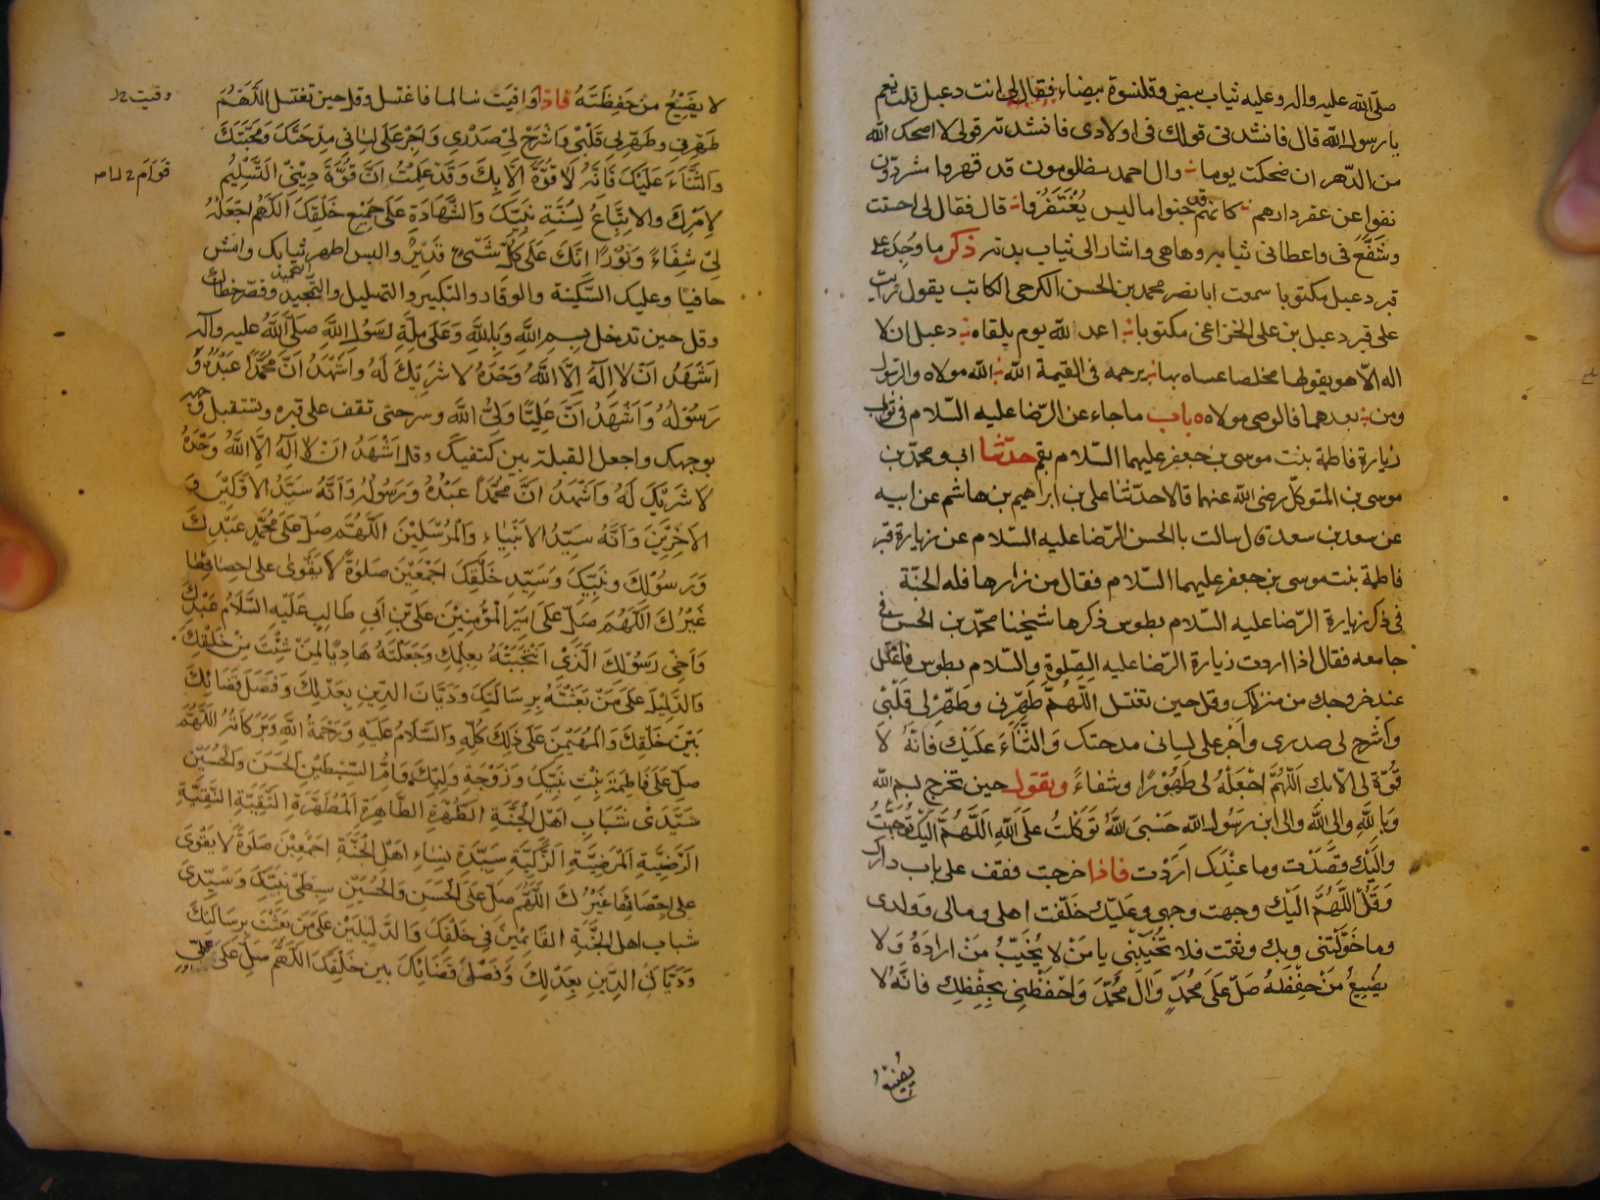 صلّى الله عليه واله وعليه ثياب بيض وقلنسوة بيضاء فقال لى انت دعبل قلت نعم
يا رسول الله قال فانشدنى قولك فى اولادى فانشدته قولى لا اضحك الله
من الدّهر ان ضحكت يوما وال احمد مظلومون قد قهروا مشردون
نفوا عن عقر دارهم كانهم قد جنوا ما ليس يُغْتَفَرُ قال فقال لى احسنت
وشَفَّعَ فىّ واعطانى ثيابه وها هى واشار الى ثياب بدنه ذكر ما وُجِدَ على
قبر دعبل مكتوبا سمعت ابا نصر محمد بن الحسن الكرخى الكاتب يقول رايت
على قبر دعبل بن على الخزاعى مكتوبا اعد لله يوم يلقاه دعبل ان لا
اله الّا هو يقولها مخلصا عساه بها يرحمه فى القيمة الله الله مولاه والرّسول
ومن بعدهما فالوصى مولاه باب ما جاء عن الرّضا عليه السّلام فى ثواب
زيارة فاطمة بنت موسى بن جعفر عليهما السّلام بقم حدّثنا ابى ومحمّد بن
موسى بن المتوكّل رضى الله عنهما قالا حدّثنا على بن ابراهيم بن هاشم عن ابيه
عن سعد بن سعد قال سالت با الحسن الرّضا عليه السّلام عن زيارة قبر
فاطمة بنت موسى بن جعفر عليهما السّلام فقال من زارها فله الجنّة
فى ذكر زيارة الرّضا عليه السّلام بطوس ذكرها شيخنا محمّد بن الحسن فى
جامعه فقال اذا اردت زيارة الرّضا عليه الصّلوة والسّلام بطوس فاغتسل
عند خروجك من منزلك وقل حين تغتسل اَللّهُمَّ طَهِّرْنِى وَطَهِّرْ لِى قَلْبْى
وَاشْرح لى صدرى وَاَجْرِ على لسِانى مدحتك وَالثَّنَاءَ عَلَيْك فَانَّهُ لاَ
قُوَّةَ لى الّا بك اَللّهُمَّ اجْعَلْهُ لى طَهُوْرًا وشفاءً ويقول حين تخرج بسم الله
وَبِاللهِ وَالى اللهِ والى ابن رَسُولِ الله حَسْبِىَ اللهُ تَوَكّلتُ عَلَى اللهِ اَللّهُمَّ اِلَيْكَ تَوَجّهْتُ
وَاِلَيْكَ قصَدْت وما عنْدَك اَرَدْت فاذا خرجت فقف على باب دارك
وَقُلْ اللّهُمَّ اِلَيْك وجهت وجهى وعليْك خلّفت اهلى ومالى وَوَلدى
وما خَوَّلْتَنى وبك وثقت فلا تُخَيِّبْنى يا مَنْ لا يُخَيِّبُ مَنْ ارادَهُ وَلا
يُضَيِّعُ مَنْ حَفِظَهُ صَلِّ عَلَى مُحَمَّدٍ وَال مُحَمَّدٍ وَاحْفَظْنِى بِحِفْظِك فَاِنَّهُ لا
يضيع
لا يُضَيِّعُ مَنْ حَفِظْتَهُ فاذا وافيَت سالما فاغتسل وقل حين تغتسل اَللّهُمَّ
طَهِّرْنِى وطَهِّرْ لِى قَلْبْى وَاشْرَحْ لِىْ صَدْرِى وَاَجْرِ عَلَى لِسَانى مِدْحَتَكَ وَمَحَبَّتَكَ
وَالثَّنَاءَ عَلَيْكَ فَانَّهُ لاَ قُوَّةَ اِلّا بِكَ وَقَدْ عَلِمْتُ اَنَّ قُوَّةَ دِيْنِىْ التَّسْلِيْمُ
لِاَمْرِكَ وَالاِتِّبَاعُ لِسُنَّةِ نَبِيّكَ وَالشَّهَادَةِ عَلَى جَمِيْعِ خَلْقِكَ اَللّهُمَّ اجْعَلْهُ
لِىْ شِفَاءً وَنُوْرًا اِنَّكَ عَلَى كُلِّ شَىْءٍ قَدْيِرٌ والبس اطهر ثيابك وامش
حافيًا وعليك السّكينة والوقار والتكبير والتهليل والتمجيد وقصر خطاك
وقل حين تدخل بِسمِ اللهِ وَبِاللهِ وَعَلَى مِلّةِ رَسُوْلِ اللهِ صَلَّى اللهُ عليه واله
اَشْهَدُ اَنْ لا اِلهَ اِلَّا اللهُ وَحْدَهُ لا شَرِيْكَ لَهُ وَاَشْهَدُ اَنَّ مُحَمَّدًا عَبْدُهُ وَ
رَسُوْلُهُ وَاَشْهَدُ اَنَّ عَلِيًّا وَلِىُّ اللهِ وسر حتى تقف على قبره وتستقبل وجهه
بوجهك واجعل القبلة بين كتفيك وقل اَشْهَدُ اَنْ لا اِلهَ اِلَّا اللهُ وَحْدَهُ
لا شَرِيْكَ لَهُ وَاَشْهَدُ اَنَّ مُحَمَّدًا عَبْدُهُ وَرَسُوْلُهُ وَاَنَّهُ سَيِّدُ الاَوَّلِيْنَ وَ
الاَخِرِيْنَ وَاَنَّهُ سَيِّدُ الاَنْبِيَاءِ وَالمُرْسَلِيْنَ اَللّهُمَّ صَلِّ عَلَى مُحَمَّدٍ عَبْدِكَ
وَرَسُوْلِكَ وَنَبِيِّكَ وَسَيِّدِ خَلْقِكَ اَجْمَعِيْنَ صَلَوةً لاَ يَقْوَى على اِحصَائِهَا
غَيْرُكَ اَللّهُمَّ صَلِّ عَلَى اَمِيْرِ الْمُؤْمِنِيْنَ عَلِىِّ بْنِ اَبِى طَالِبٍ عَلَيْهِ السَّلَامُ عَبْدِكَ
وَاَخِى رَسُوْلِكَ الَّذِىْ انْتَجَبْتَهُ بِعِلْمِكَ وَجَعَلْتَهُ هَادِيًا لِمَنْ شِئْتَ مِنْ خَلْقِكَ
وَالدَّلِيْلَ عَلَى مَنْ بَعَثْتَهُ بِرِسَالَتِكَ وَدَيَّانَ الدِّيْنِ بِعَدْلِكَ وَفَصْلَ قَضَائِكَ
بَيْنَ خَلْقِكَ وَالْمُهَيْمِنَ عَلَى ذَلِكَ كُلِّهِ وَالسَّلَامُ عَلَيْهِ وَرَحْمَةُ اللهِ وَبَرَكَاتُهُ اَللّهُمَّ
صَلِّ عَلَى فَاطِمَةَ بِنْتِ نَبِيِّكَ وَزَوْجَةِ وَلِيِّكَ وَاُمِّ السِّبْطَيْنِ الحَسَنِ وَالحُسَيْنِ
سَيِّدَىْ شَبَابِ اَهْلِ الْجَنَّةِ الطُّهْرَةِ الطَّاهِرَةِ المُطَهَّرَةِ التَّقِيَّةِ النَّقِيَّةِ
الرَّضِيَّةِ الْمَرْضِيَّةِ الزَّكِيَّةِ سَيِّدَةِ نِسَاءِ اهْلِ الجَنَّةِ اَجْمَعِيْنَ صَلَوةً لَا يَقْوَى
على اِحْصَائِهَا غَيْرُكَ اَللّهُمَّ صَلِّ عَلَى الْحَسَنِ وَالحُسَيْنِ سِبْطَىْ نَبِيِّكَ وَسَيِّدَى
شباب اهل الجَنَّةِ القَائِمَيْنِ فِى خَلْقِكَ وَالدَّلِيْلَيْنِ عَلَى مَنْ بَعَثْتَ بِرِسَالَتِكَ
وَدَيَّانَىِ الدِّيْنِ بِعَدْلِكَ وَفَصْلَىْ قَضَائِكَ بين خَلْقِكَ اَللّهُمَّ صَلِّ عَلَى عَلِىِّ